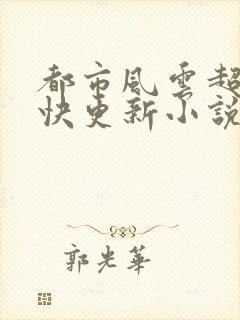 都市風雲超
快更新小說
郭光華